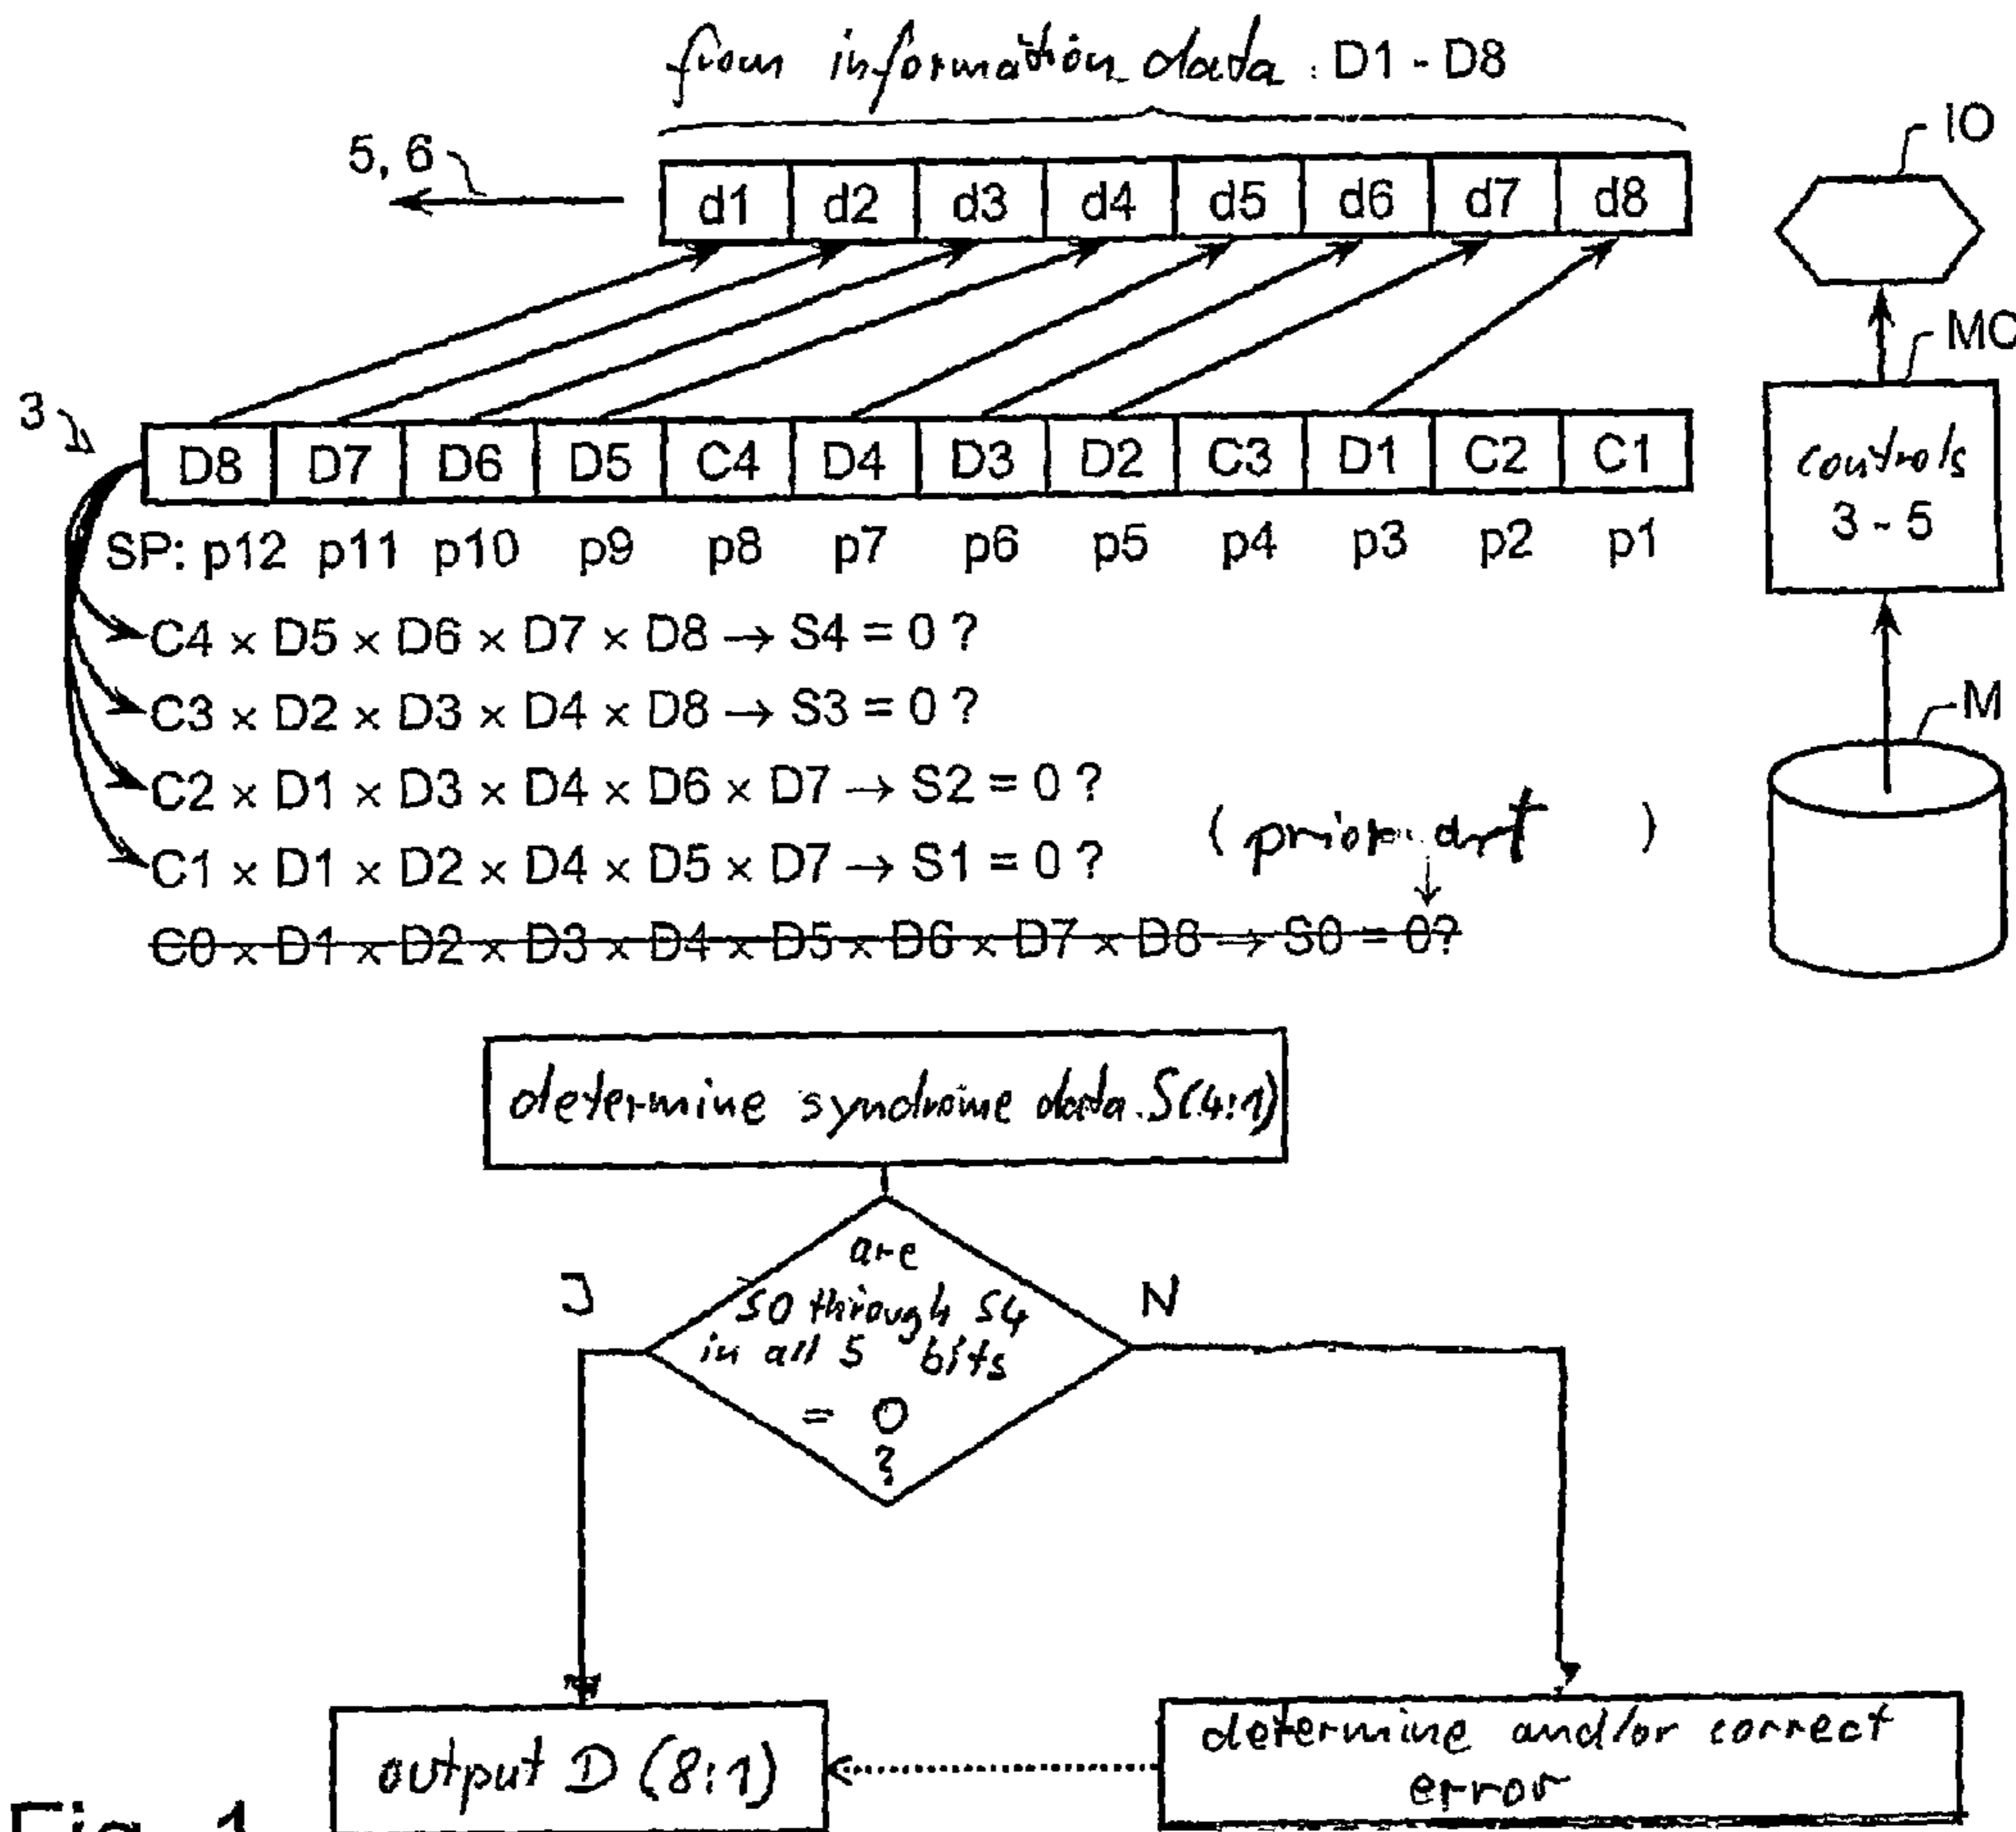 from information data: D1 - D8
5, 6
IO
d1 d2 d3 d4 d5 d6 d7 d8
MC
3
D8 D7 D6 D5 C4 D4 D3 D2 C3 D1 C2 C1
controls
3 - 5
SP: p12 p11 p10 p9 p8 p7 p6 p5 p4 p3 p2 p1
C4 × D5 × D6 × D7 × D8 → S4 = 0 ?
C3 × D2 × D3 × D4 × D8 → S3 = 0 ?
M
C2 × D1 × D3 × D4 × D6 × D7 → S2 = 0 ?
(prior art)
C1 × D1 × D2 × D4 × D5 × D7 → S1 = 0 ?
C0 × D1 × D2 × D3 × D4 × D5 × D6 × D7 × D8 → S0 = 0?
determine syndrome data S(4:1)
are
S0 through S4
in all 5 bits
= 0
?
J
N
output D (8:1)
determine and/or correct
error
Fig. 1